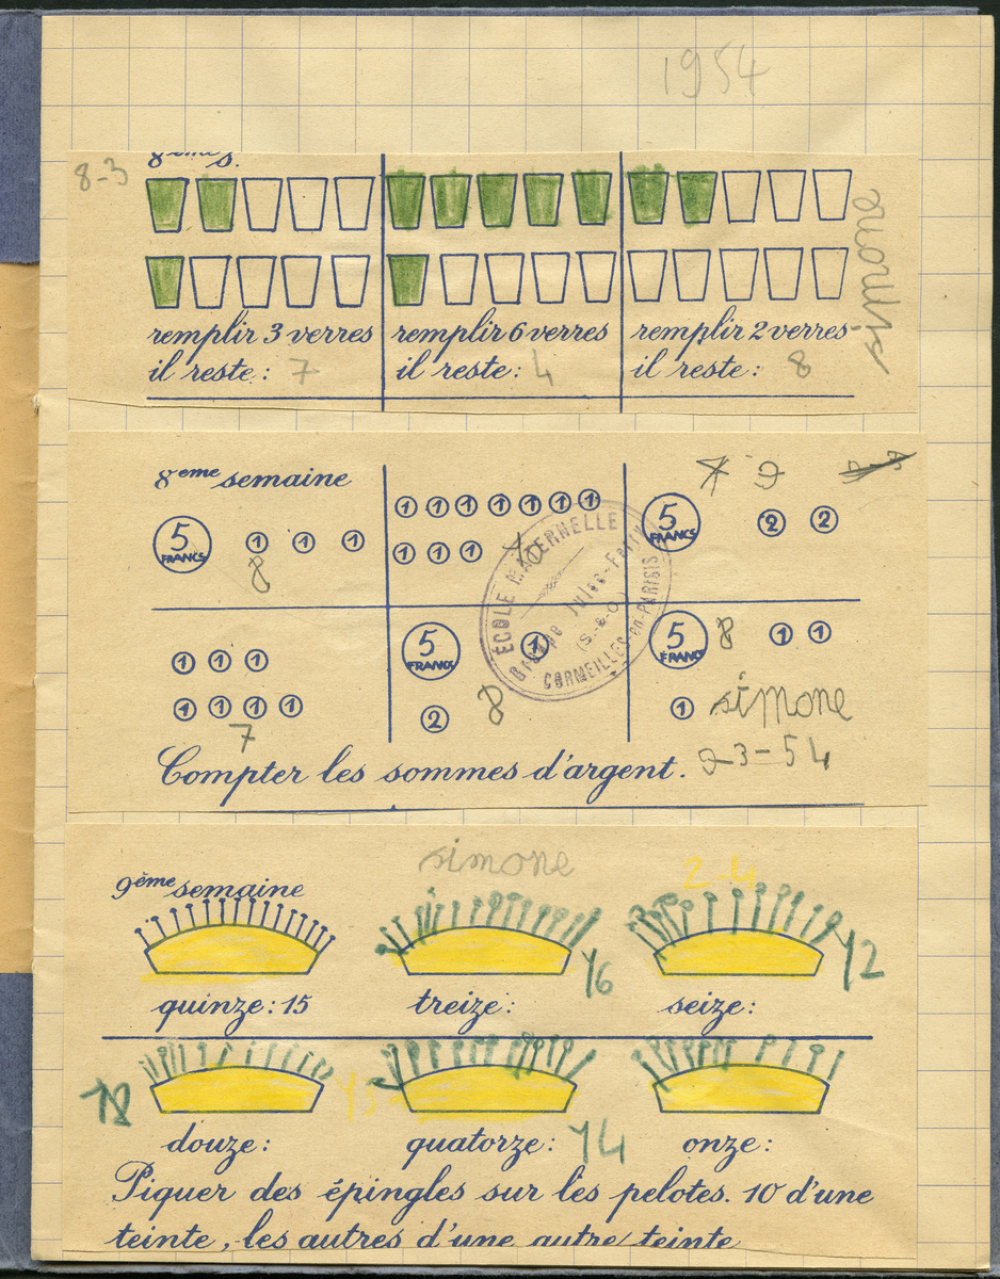 1954
8-3
8ème S.
remplir 3 verres
il reste : 7
remplir 6 verres
il reste : 4
remplir 2 verres
il reste : 8
simone
8eme semaine
5 FRANCS 1 1 1
8
1 1 1 1 1 1 1
1 1 1
9
5 FRANCS 2 2
1 1 1
1 1 1 1
7
5 FRANCS 1
2
8
5 FRANCS 8 1 1
1
simone
9-3-54
Compter les sommes d'argent.
ÉCOLE MATERNELLE
Groupe Jules-Ferry
(S.-&-O.)
CORMEILLES-en-PARISIS
simone
2-4
9ème semaine
quinze : 15
treize :
16
seize :
12
douze :
quatorze : 14
onze :
Piquer des épingles sur les pelotes. 10 d'une
teinte, les autres d'une autre teinte